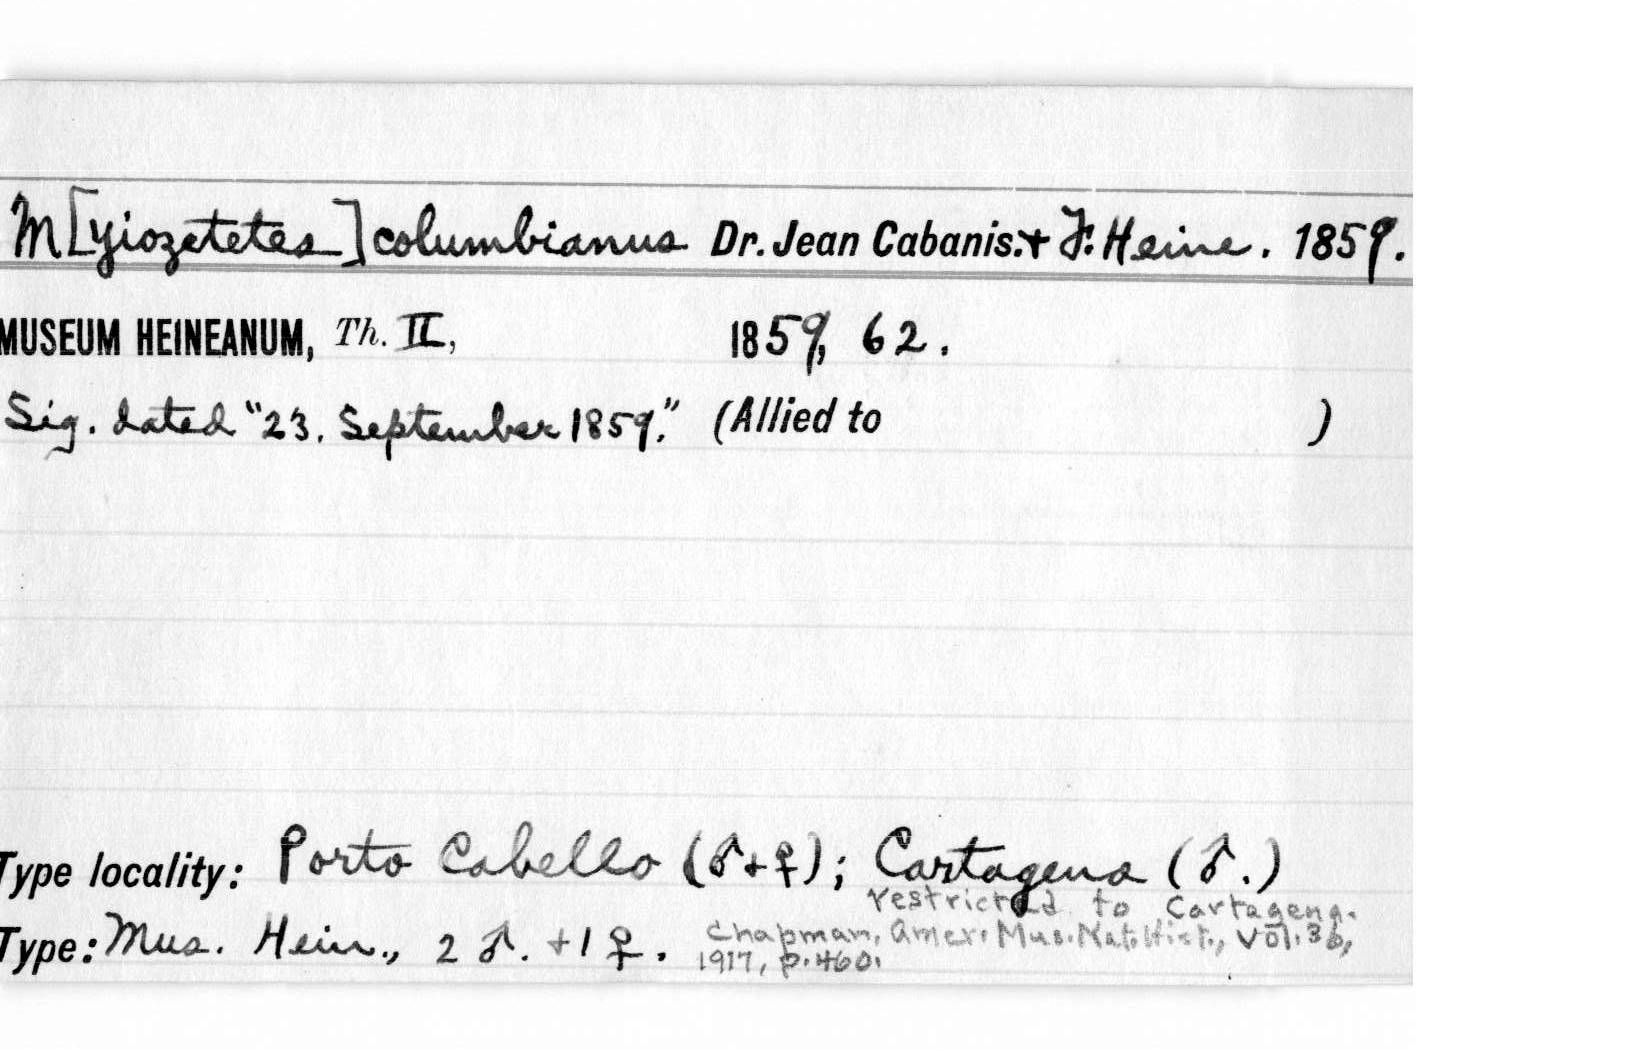 M[yiozetetes] columbianus Dr. Jean Cabanis. + F. Heine. 1859.
MUSEUM HEINEANUM, Th. II, 1859, 62.
Sig. dated "23. September 1859." (Allied to )
Type locality: Porto Cabello (♂+♀); Cartagena (♂.)
restricted to Cartagena.
Type: Mus. Hein., 2 ♂. +1 ♀. Chapman, Amer. Mus. Nat. Hist., Vol. 36,
1917, p. 460.